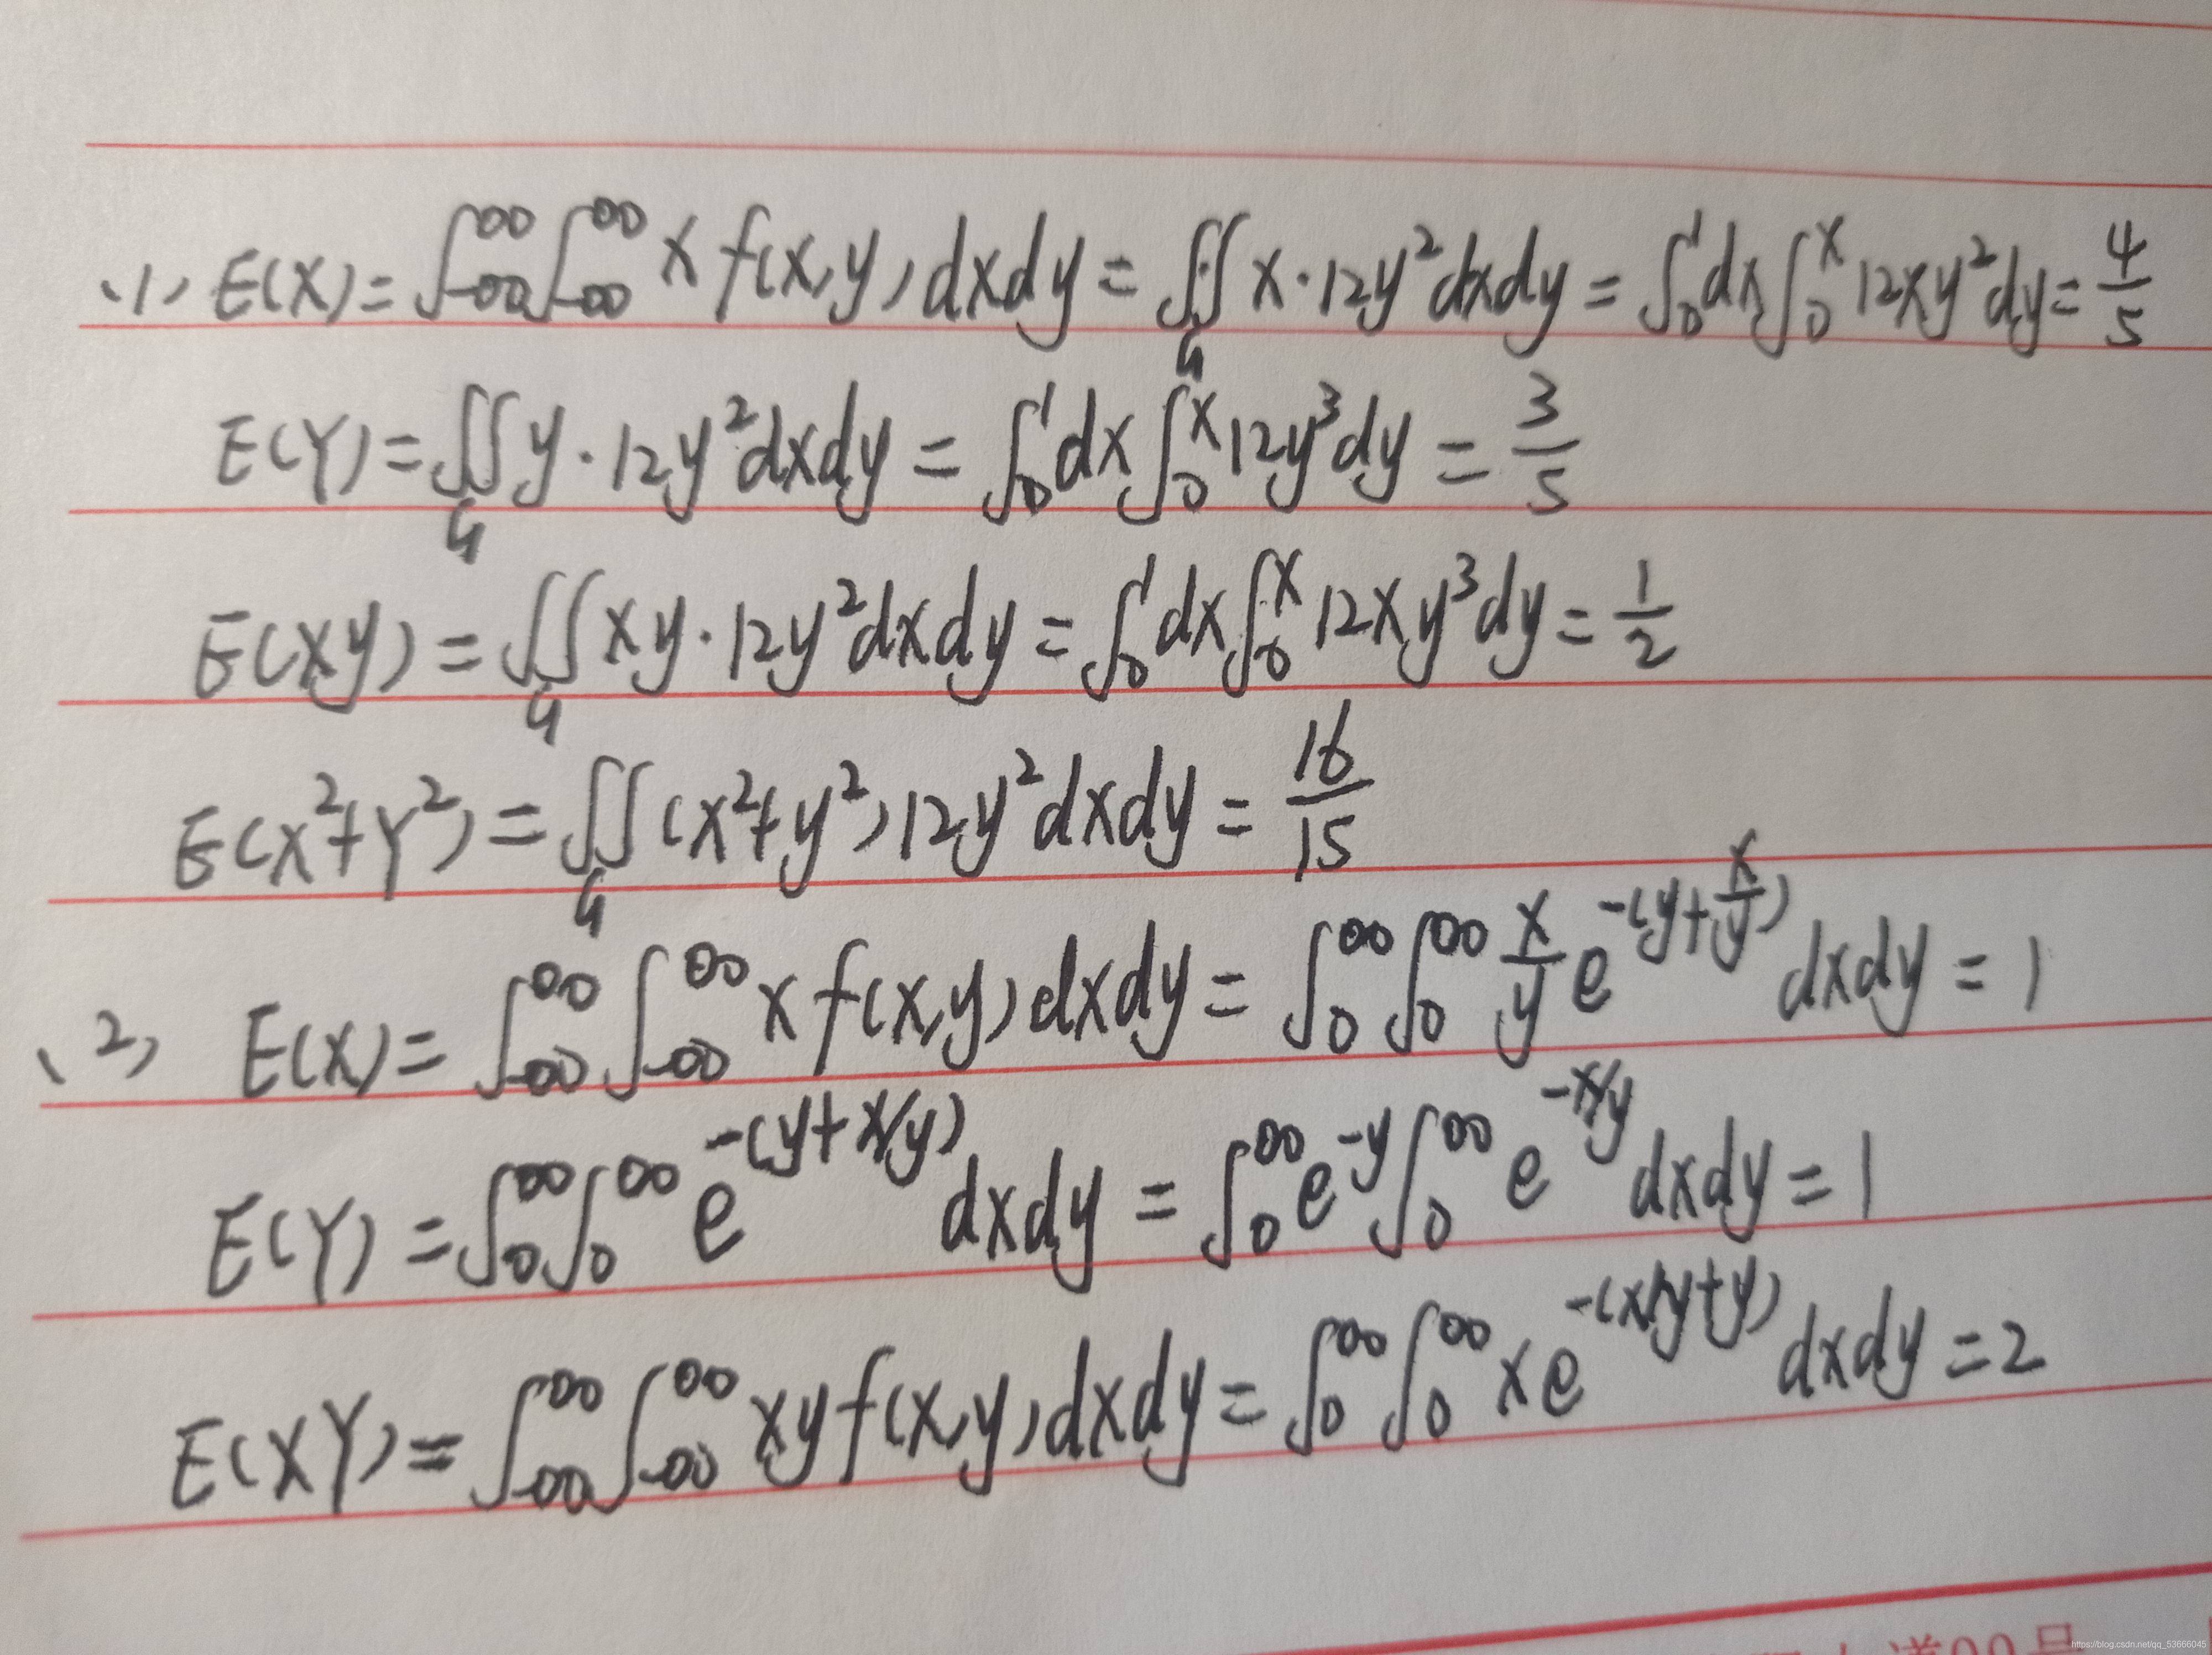 (1) E(X) = ∫_{-∞}^{∞} ∫_{-∞}^{∞} x f(x,y) dxdy = ∬_G x·12y² dxdy = ∫_0^1 dx ∫_0^x 12xy² dy = 4/5
E(Y) = ∬_G y·12y² dxdy = ∫_0^1 dx ∫_0^x 12y³ dy = 3/5
E(XY) = ∬_G xy·12y² dxdy = ∫_0^1 dx ∫_0^x 12xy³ dy = 1/2
E(X²+Y²) = ∬_G (x²+y²) 12y² dxdy = 16/15
(2) E(X) = ∫_{-∞}^{∞} ∫_{-∞}^{∞} x f(x,y) dxdy = ∫_0^∞ ∫_0^∞ x/y e^{-(y+x/y)} dxdy = 1
E(Y) = ∫_0^∞ ∫_0^∞ e^{-(y+x/y)} dxdy = ∫_0^∞ e^{-y} ∫_0^∞ e^{-x/y} dxdy = 1
E(XY) = ∫_{-∞}^{∞} ∫_{-∞}^{∞} xy f(x,y) dxdy = ∫_0^∞ ∫_0^∞ x e^{-(x/y+y)} dxdy = 2
道99号
https://blog.csdn.net/qq_53666045